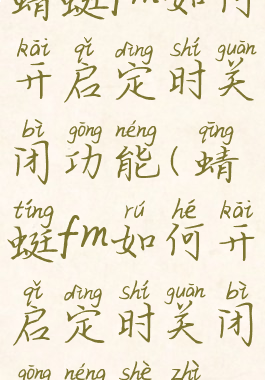 蜻蜓fm如何
kāi qǐ dìng shí guān
开启定时关
bì gōng néng qīng
闭功能(蜻
tíng rú hé kāi
蜓fm如何开
qǐ dìng shí guān bì
启定时关闭
gōng néng shè zhì